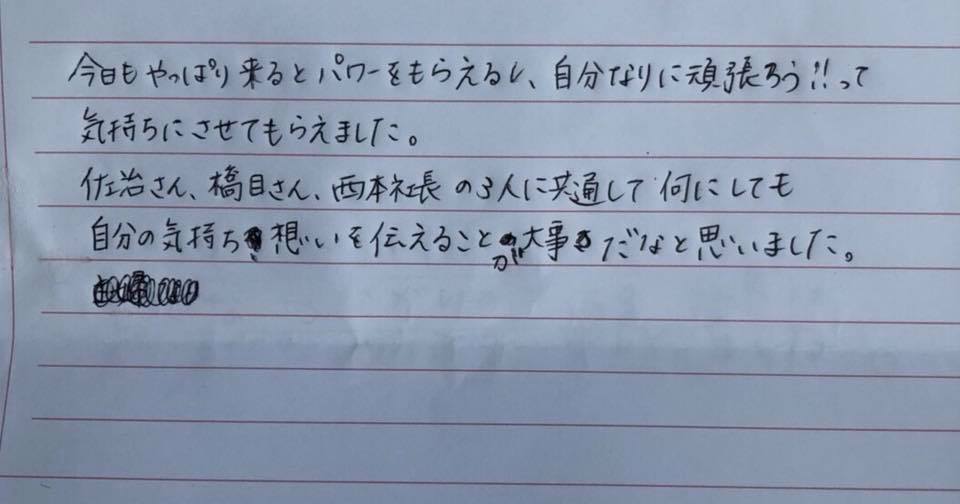 今日もやっぱり来るとパワーをもらえるし、自分なりに頑張ろう!!って
気持ちにさせてもらえました。
佐治さん、橋目さん、西本社長の3人に共通して何にしても
自分の気持ち、想いを伝えることが大事だなと思いました。